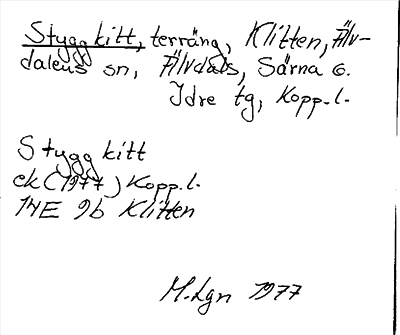 Styggkitt, terräng, Klitten, Älv-
dalens sn, Älvdals, Särna o.
Idre tg, Kopp.l.
Styggkitt
ek (1977) Kopp.l.
14E 9b Klitten
M.Lgn 1977